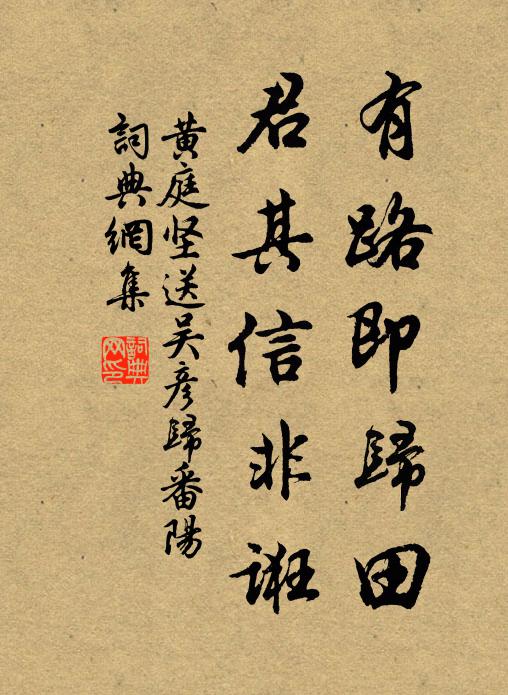 有路即歸田
君其信非誑
黄庭坚送吴彦歸番陽
詞典網集
詞典網印